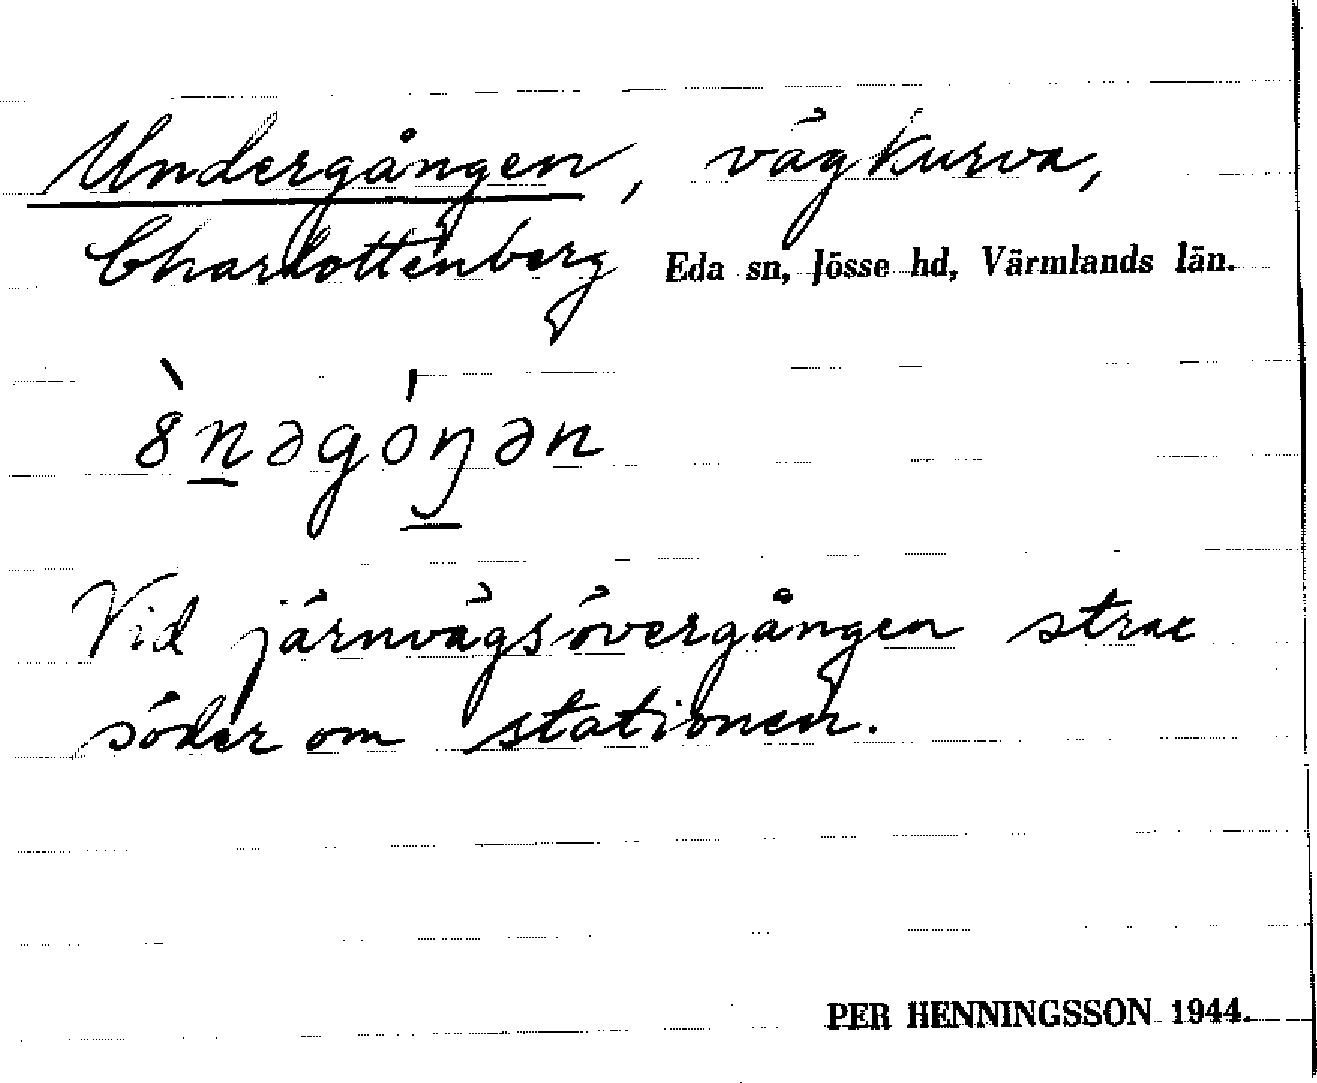 Undergången, vägkurva,
Charlottenberg Eda sn, Jösse hd, Värmlands län.
ònəgóŋən
Vid järnvägsövergången strax
söder om stationen.
PER HENNINGSSON 1944.